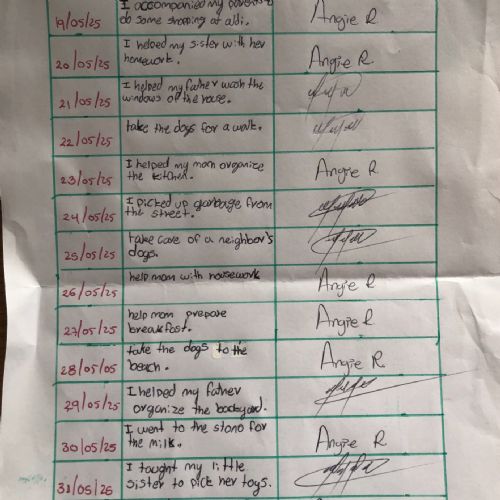 I accompanied my parents
19/05/25 do some shopping at aldi. Angie R
I helped my sister with her
20/05/25 homework. Angie R
I helped my father wash the
21/05/25 windows of the house.
22/05/25 take the dogs for a walk.
I helped my mom organize
23/05/25 the kitchen. Angie R
I picked up garbage from
24/05/25 the street.
take care of a neighbor's
25/05/25 dogs.
help mom with housework
26/05/25 Angie R
help mom prepare
27/05/25 breakfast. Angie R
take the dogs to the
28/05/05 beach. Angie R
I helped my father
29/05/25 organize the backyard.
I went to the stono for
30/05/25 the milk. Angie R
I tought my little
31/05/25 sister to pick her toys.